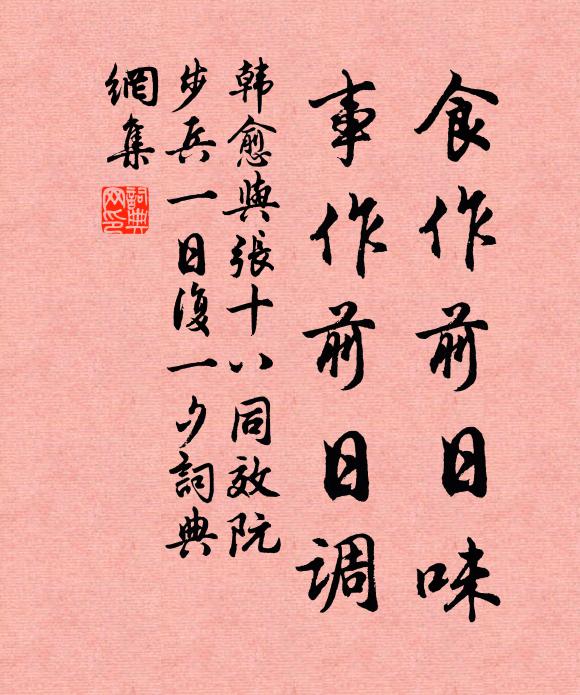 食作前日味
事作前日调
韩愈與張十八同效阮
步兵一日復一夕詞典
網集
詞典
网印